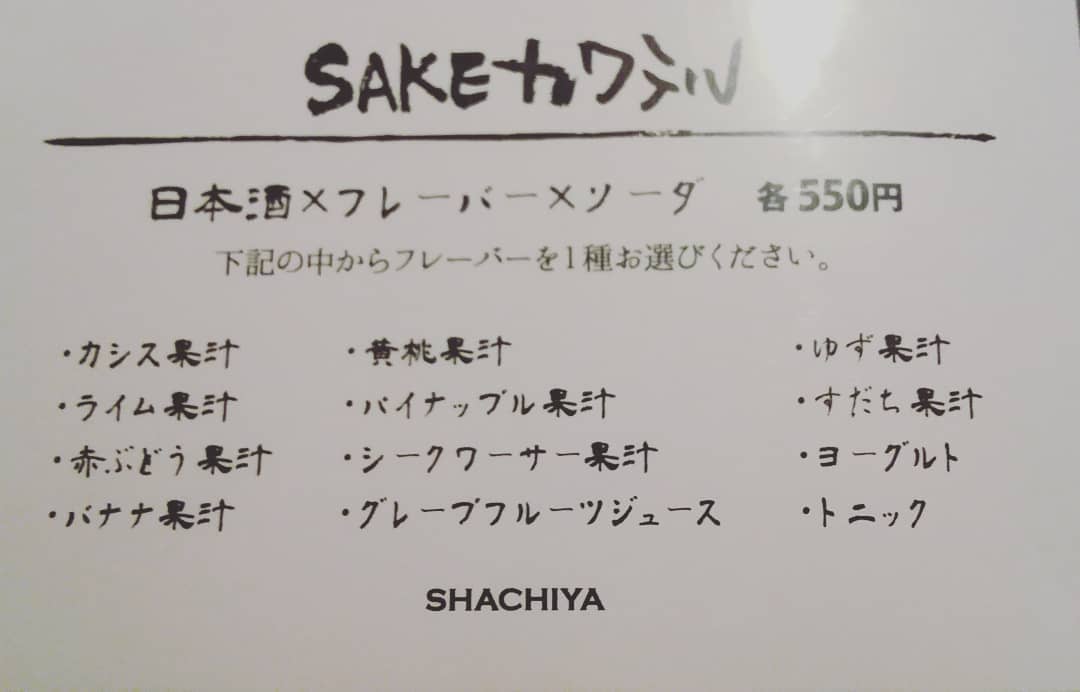 SAKEカクテル
日本酒×フレーバー×ソーダ 各550円
下記の中からフレーバーを1種お選びください。
・カシス果汁 ・黄桃果汁 ・ゆず果汁
・ライム果汁 ・パイナップル果汁 ・すだち果汁
・赤ぶどう果汁 ・シークワーサー果汁 ・ヨーグルト
・バナナ果汁 ・グレープフルーツジュース ・トニック
SHACHIYA